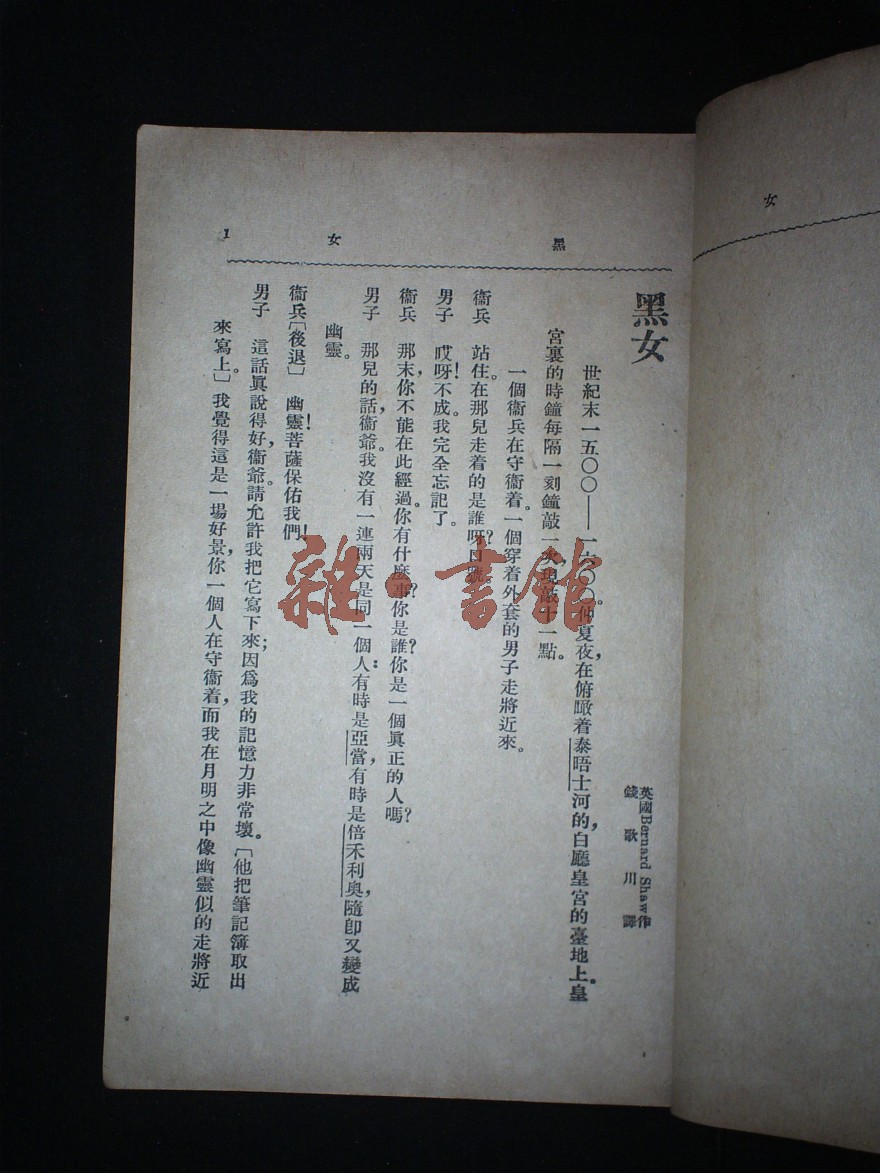 女
黑女
黑女
英國Bernard Shaw作
錢歌川譯
世紀末一五〇〇——一六〇〇。仲夏夜,在俯瞰着泰晤士河的白廳皇宮的臺地上。皇
宮裏的時鐘每隔一刻鐘敲一次,現敲十一點。
一個衞兵在守衞着。一個穿着外套的男子走將近來。
衞兵 站住。在那兒走着的是誰呀?口號
男子 哎呀!不成。我完全忘記了。
衞兵 那末,你不能在此經過。你有什麼事?你是誰?你是一個眞正的人嗎?
男子 那兒的話,衞爺。我沒有一連兩天是同一個人:有時是亞當,有時是倍禾利奧,隨卽又變成
幽靈。
衞兵〔後退〕 幽靈!菩薩保佑我們!
男子 這話眞說得好,衞爺。請允許我把它寫下來;因爲我的記憶力非常壞。〔他把筆記簿取出
來寫上。〕我覺得這是一場好景,你一個人在守衞着,而我在月明之中像幽靈似的走將近
1
雜·書館